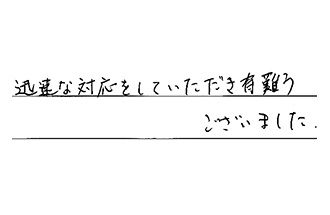 迅速な対応をしていただき有難う
ございました.